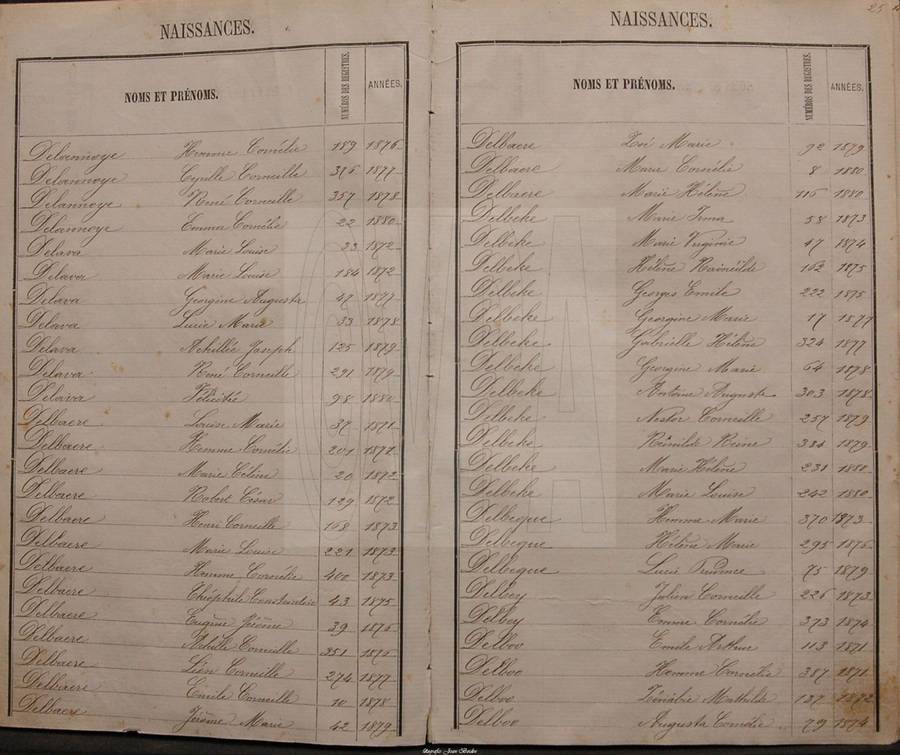 NAISSANCES.
NOMS ET PRÉNOMS. NUMÉROS DES REGISTRES. ANNÉES.
Delannoye Hemme Cornélie 189 1876
Delannoye Cyrille Corneille 376 1877
Delannoye René Corneille 357 1878
Delannoye Emma Cornélie 22 1880
Delava Marie Louise 23 1872
Delava Marie Louise 184 1872
Delava Georgine Augusta 47 1877
Delava Lucie Marie 33 1878
Delava Achillée Joseph 125 1879
Delava René Corneille 291 1879
Delava Félicité 98 1880
Delbaere Louise Marie 37 1871
Delbaere Hemme Cornélie 201 1871
Delbaere Marie Céline 20 1872
Delbaere Robert César 129 1872
Delbaere Henri Corneille 168 1873
Delbaere Marie Louise 221 1873
Delbaere Hemme Cornélie 400 1873
Delbaere Théophile Constantin 43 1875
Delbaere Eugène Jérôme 39 1876
Delbaere Achille Corneille 351 1876
Delbaere Léon Corneille 274 1877
Delbaere Emile Corneille 10 1878
Delbaere Jérôme Marie 42 1879
25
NAISSANCES.
NOMS ET PRÉNOMS. NUMÉROS DES REGISTRES. ANNÉES.
Delbaere Zoé Marie 92 1879
Delbaere Marie Cornélie 8 1880
Delbaere Marie Hélène 116 1880
Delbeke Marie Irma 58 1873
Delbeke Marie Virginie 47 1874
Delbeke Hélène Raineilde 162 1875
Delbeke Georges Emile 222 1875
Delbeke Georgine Marie 17 1877
Delbeke Gabrielle Hélène 324 1877
Delbeke Georgine Marie 64 1878
Delbeke Antoine Auguste 303 1878
Delbeke Nestor Corneille 257 1879
Delbeke Rainilde Reine 384 1879
Delbeke Marie Hélène 231 1880
Delbeke Marie Louise 242 1880
Delbeque Hemma Marie 370 1873
Delbeque Hélène Marie 295 1876
Delbeque Lucie 75 1879
Delbey Julien Corneille 226 1873
Delbey Emma Cornélie 373 1874
Delboo Emile Arthur 113 1871
Delboo Hemme Cornélie 387 1871
Delboo Mathilde 137 1872
Delboo Augusta Cornélie 79 1874